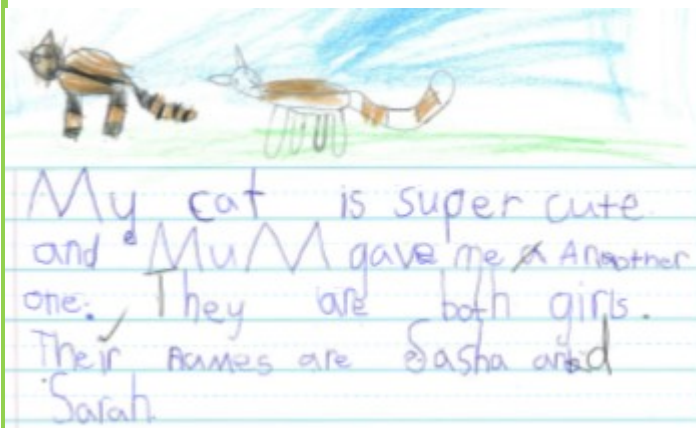 My cat is super cute
and MuM gave me Another
one. They are both girls.
Their names are Sasha and
Sarah